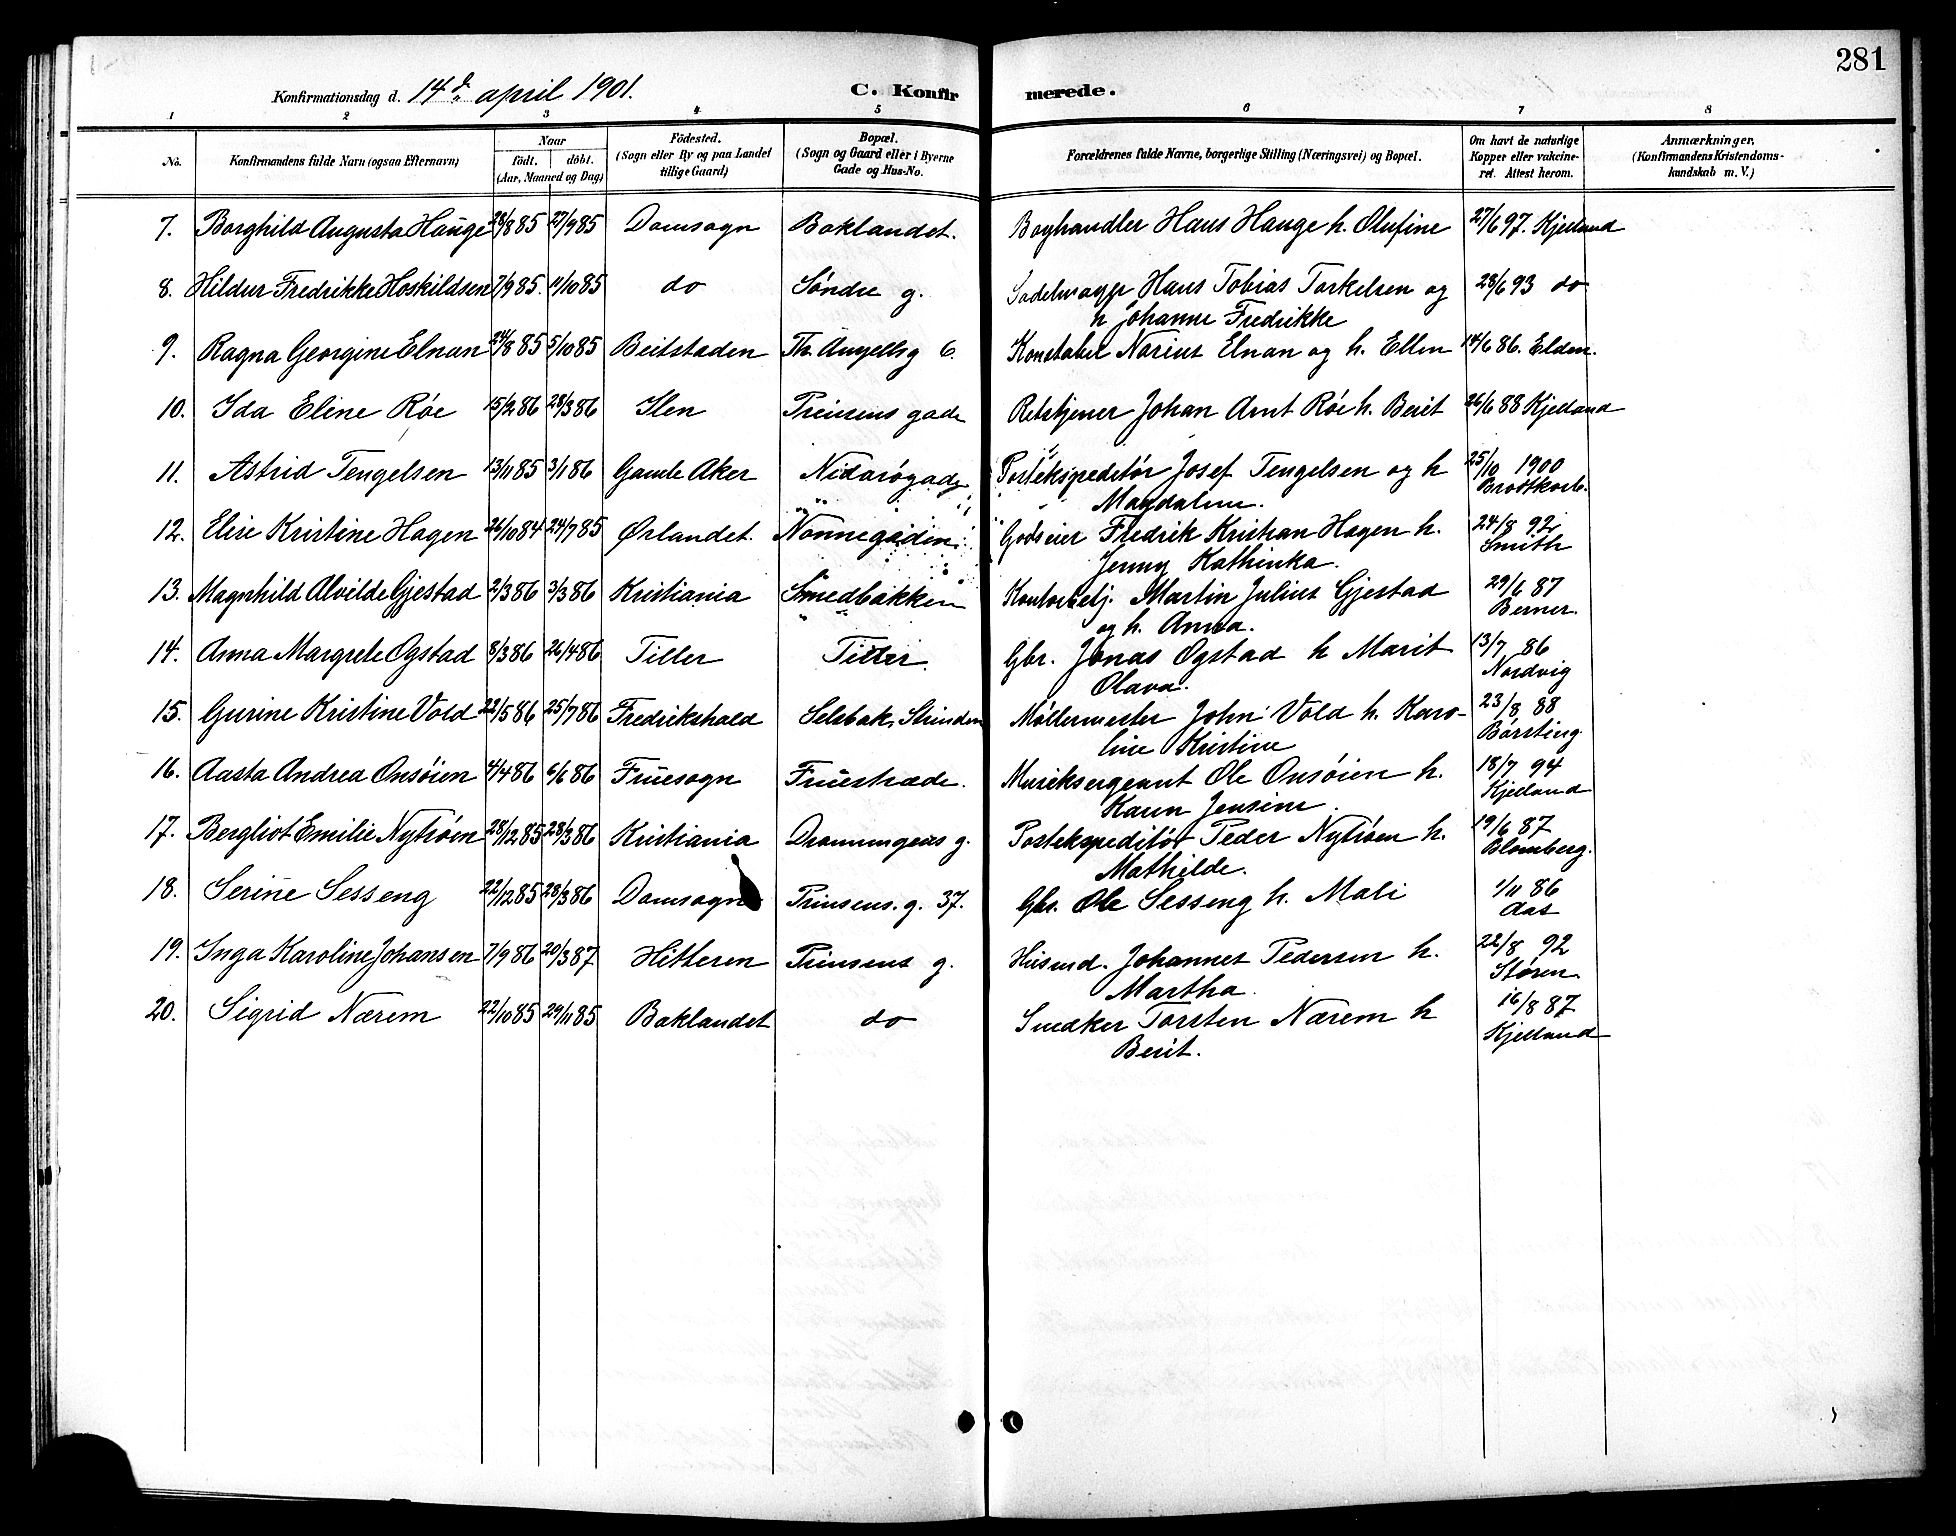 281
Konfirmationsdag d. 14d april 1901. C. Konfirmerede.
1 2 3 4 5 6 7 8
No. Konfirmandens fulde Navn (ogsaa Efternavn) Naar født. døbt. (Aar, Maaned og Dag) Fødested. (Sogn eller By og paa Landet tillige Gaard) Bopæl. (Sogn og Gaard eller i Byerne Gade og Hus-No. Forældrenes fulde Navne, borgerlige Stilling (Næringsvei) og Bopæl. Om havt de naturlige Kopper eller vakcineret. Attest herom. Anmærkninger. (Konfirmandens Kristendomskundskab m. V.)
7. Borghild Augusta Hauge 28/8 85 27/9 85 Domsogn Baklandet. Boghandler Hans Hauge h. Olufine 27/6 97. Kjelland
8. Hildur Fredrikke Hoskildsen 7/9 85. 11/10 85 do Søndre g. Sadelmager Hans Tobias Torkelsen og 28/6 93 do
h Johanne Fredrikke
9. Ragna Georgine Elnan 24/8 85 5/10 85 Beitstaden Th. Angellsg 6. Konstabel Narius Elnan og h. Ellen 14/6 86. Elden.
10. Ida Eline Røe 15/2 86 28/3 86 Ilen Prinsens gade Retstjener Johan Arnt Røe h. Berit 26/6 88 Kjelland
11. Astrid Tengelsen 13/11 85 3/1 86 Gamle Aker Nidarøgade Postekspeditør Josef Tengelsen og h 25/10 1900
Magdalene. Brodtkorb.
12. Elise Kristine Hagen 26/10 84 24/7 85 Ørlandet. Nonnegaden Godseier Fredrik Kristian Hagen h. 24/8 92
Jenny Kathinka. Smith
13. Magnhild Alvilde Gjestad 2/3 86 3/3 86 Kristiania Smedbakken Kontorbetj. Martin Julius Gjestad 29/6 87
og h. Anna. Berner.
14. Anna Margrete Ogstad 8/3 86 26/4 86 Tiller Tiller. Gbr. Jonas Ogstad h Marit 13/7 86
Olava. Nordvig
15. Gurine Kristine Vold 22/5 86 25/7 86 Fredrikshald Selsbak, Strinden Møllermester John Vold h. Karo- 23/8 88
line Kristine Børsting
16. Aasta Andrea Onsøien 4/4 86 6/6 86 Fruesogn Fruestræde. Musiksergeant Ole Onsøien h. 18/7 94
Karen Jensine. Kjelland
17. Bergliot Emilie Nytrøen 28/12 85 28/3 86 Kristiania Dronningens g. Postekspeditør Peder Nytrøen h. 19/6 87
Mathilde. Blomberg.
18. Serine Sesseng 22/12 85 28/3 86 Domsogn Prinsens. g. 37. Gbr. Ole Sesseng h. Mali 1/11 86
Aas
19. Inga Karoline Johansen 7/9 86 20/3 87 Hitteren Prinsens g. Husmd. Johannes Pedersen h. 22/8 92
Martha. Støren.
20. Sigrid Nærem 22/10 85 29/11 85 Baklandet do Snedker Torsten Nærem h 16/8 87
Berit. Kjelland